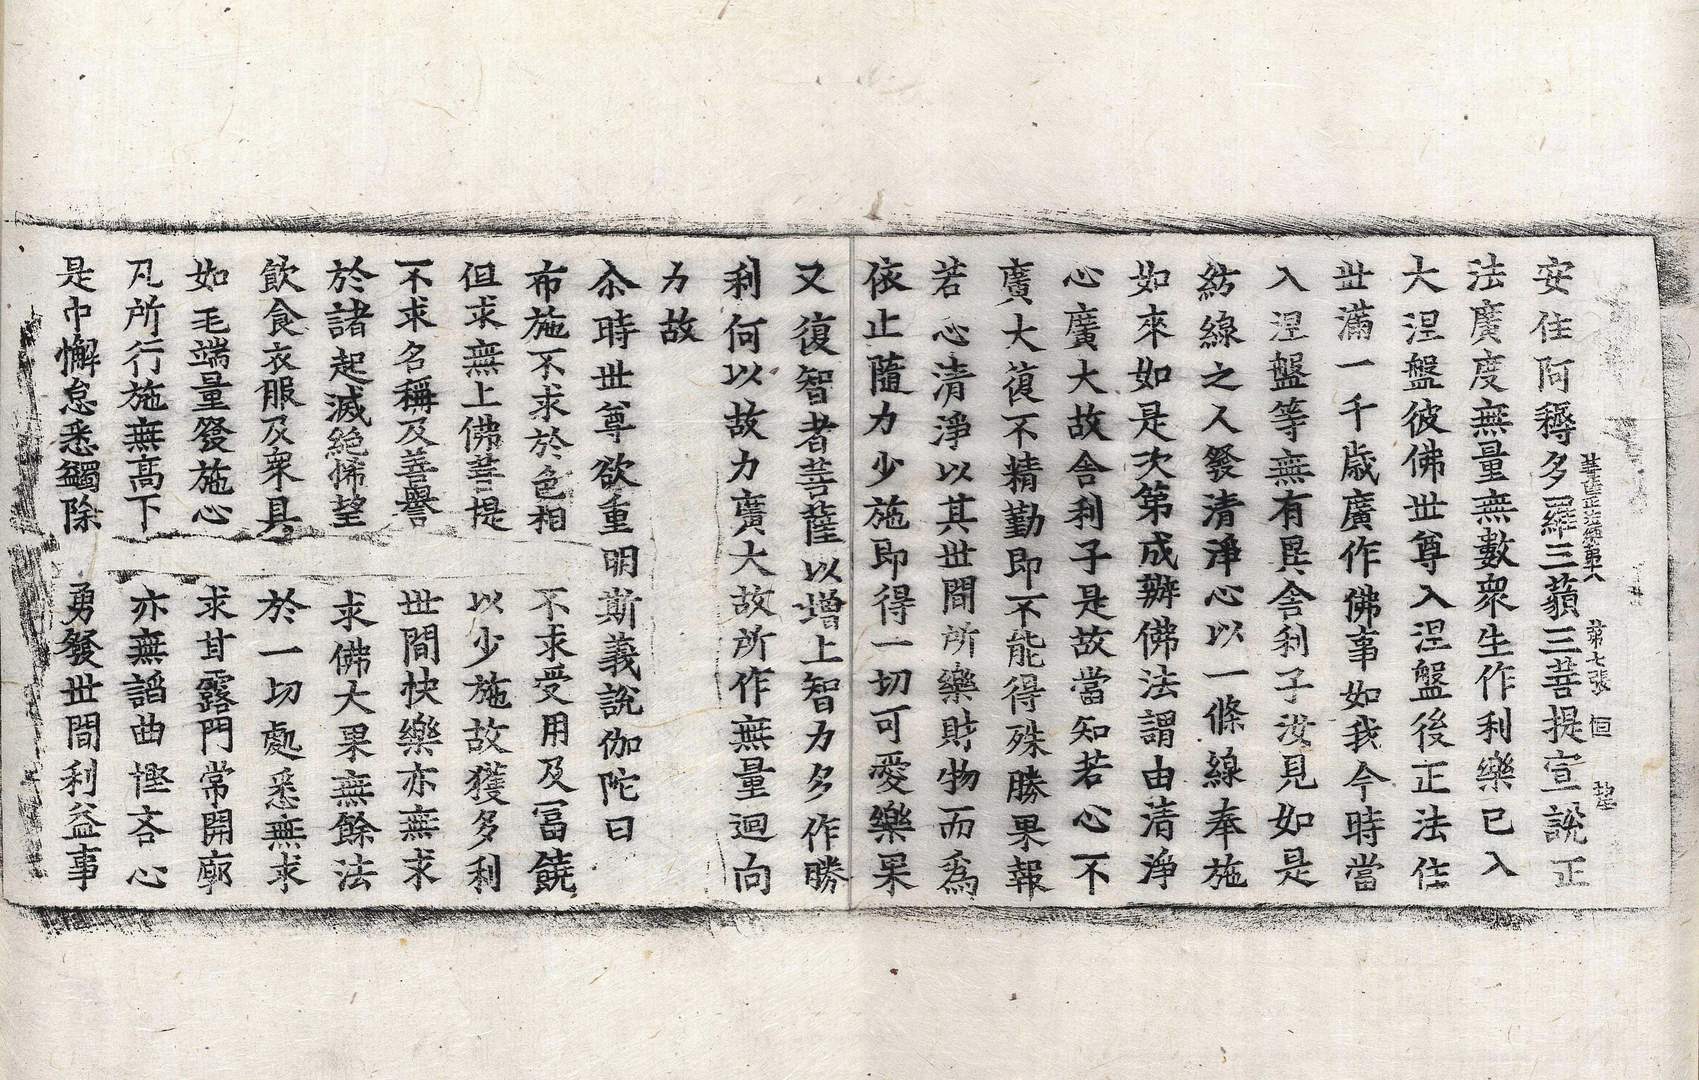 菩薩正法經第八 第七張 恒 㘽
安住阿耨多羅三藐三菩提宣說正
法廣度無量無數衆生作利樂已入
大涅盤彼佛世尊入涅盤後正法住
丗滿一千歲廣作佛事如我今時當
入涅盤等無有異舍利子汝見如是
紡線之人發清淨心以一條線奉施
如來如是次第成辦佛法謂由清淨
心廣大故舍利子是故當知若心不
廣大復不精勤即不能得殊勝果報
若心清淨以其世間所樂財物而爲
依止隨力少施即得一切可愛樂果
又復智者菩薩以增上智力多作勝
利何以故力廣大故所作無量迴向
力故
尒時世尊欲重明斯義說伽陀曰
布施不求於色相 不求受用及冨饒
但求無上佛菩提 以少施故獲多利
不求名稱及善譽 世間快樂亦無求
於諸起滅絕悕望 求佛大果無餘法
飮食衣服及衆具 於一切處悉無求
如毛端量發施心 求甘露門常開廓
凡所行施無高下 亦無諂曲慳吝心
是中懈怠悉蠲除 勇發世間利益事